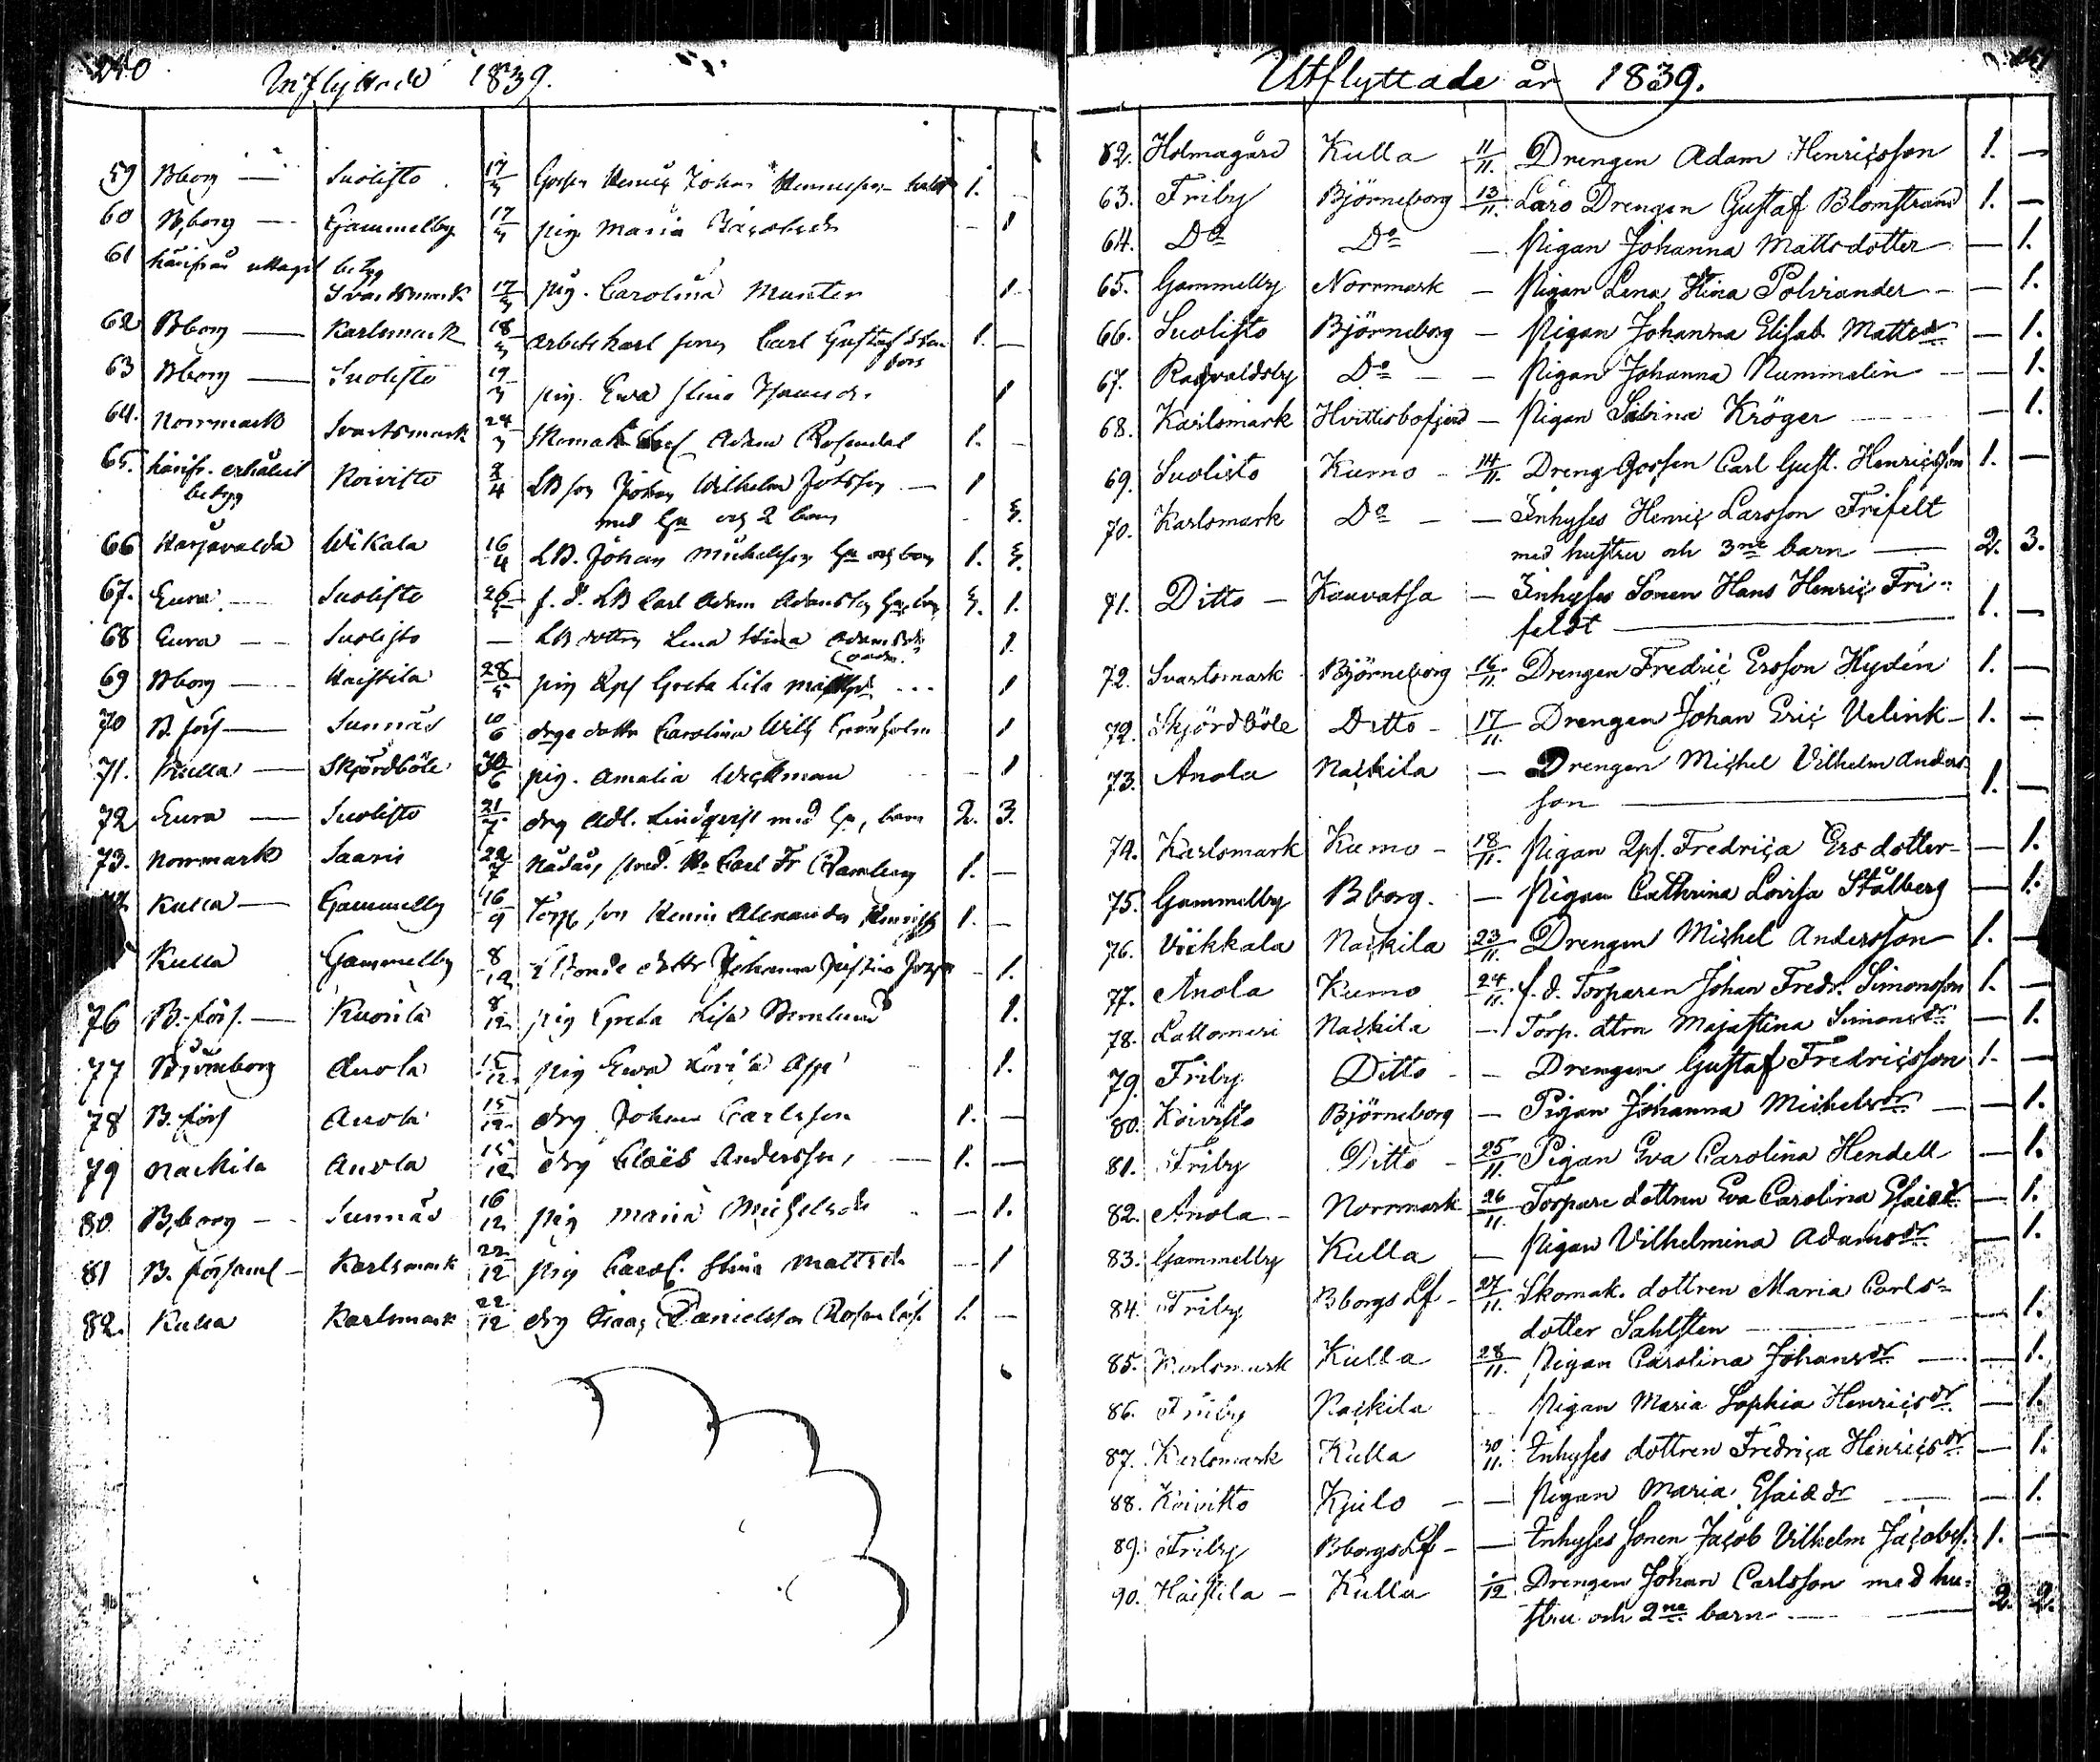 240
Inflyttade 1839.
59 Bborg — Suolisto 17/3 Gossen Henric Johan 1. -
60 B,borg — Gammelby 17/3 pig. Maria Jacobsdr - 1
61 härifrån uttagit betyg
Svartsmark 17/3 pig. Carolina Munter - 1
62 Bborg — Karlsmark 18/3 arbetskarl sonen Carl Gustaf 1. -
63 Bborg — Suolisto 19/3 pig. Ewa Stina 1
64. Norrmark Svartsmark 24/3 Adam Rosendal 1. -
65. härifr. erhållit Koivisto 2/4 LB son Johan Wilhelm — 1
betyg med hu och 2 barn - 3.
66 Harjavalda Wikala 16/4 LB. Johan Michelsson hu och barn 1. 3.
67. Eura — Suolisto f. d. LB Carl Adam 3. 1.
68 Eura — Suolisto — LB dottren Lena Stina 1.
69 Bborg — Haistila 28/5 pig Greta Lisa 1
70 B. förs — Sunnäs 10/6 drgs dottr Carolina Wilh 1
71. Kulla — Skjördböle 30/6 pig. Amalia Weckman - 1
72 Eura — Suolisto 21/7 drg Adl. Lindqvist med hu, barn 2. 3.
73. Norrmark Saaris 22/7 Carl Fr Ramberg 1. —
Kulla — Gammelby 16/9 Torp. son Henric Alexander 1. -
Kulla Gammelby 8/12 dottr Johanna Justina - 1.
76 B. förs. — Ruosila 8/12 pig Greta Lisa 1.
77 Björneborg Anola 15/12 pig Ewa Lovisa 1.
78 B. förs Anola 15/12 drg Johan Carlsson 1. —
79 Nackila Anola 15/12 drg Claës Andersson, 1. —
80 B,borg — Sunnäs 16/12 pig Maria Michelsdr - 1.
81 B. församl — Karlsmark 22/12 pig Carol. Stina Mattsdr - 1
82. Kulla Karlsmark 22/12 drg Isaac Danielsson 1. —
Utflyttade år 1839.
62. Holmagård Kulla 11/11. Drengen Adam Henricsson 1. —
63. Friby Björneborg 13/11. Läro Drengen Gustaf Blomstrand 1. —
64. Do Do — Pigan Johanna Mattsdotter — 1.
65. Gammelby Norrmark — Pigan Lena Stina Polviander — 1.
66. Suolisto Björneborg — Pigan Johanna Elisab. Mattsdr — 1.
67. Ragvaldsby Do — Pigan Johanna Nummelin — 1.
68. Karlsmark Hvittisbofjärd — Pigan Sabina Kröger — 1.
69. Suolisto Kumo — 14/11. Dreng Gossen Carl Gust. Henricsson 1. —
70. Karlsmark Do — Inhyses Henric Larsson Frifelt
med hustru och 3ne barn — 2. 3.
71. Ditto — Kauvatsa — Inhyses Sonen Hans Henric Fri-
feldt — 1. —
72. Svartsmark Björneborg 16/11. Drengen Fredric Ersson Hydén 1. —
72. Skjördböle Ditto — 17/11. Drengen Johan Eric Velink — 1. —
73. Anola Nackila — Drengen Michel Vilhelm Anders-
son — 1. —
74. Karlsmark Kumo — 18/11. Pigan Qpf. Fredrica Ersdotter — 1.
75. Gammelby Bborg. — Pigan Cathrina Lovisa Stålberg — 1.
76. Viikkala Nackila 23/11. Drengen Michel Andersson 1. —
77. Anola Kumo 24/11. f. d. Torparen Johan Fredr. Simonsson 1. —
78. Lattomeri Nackila — Torp. dttrn Majastina Simonsdr — 1.
79. Friby Ditto — Drengen Gustaf Fredricsson 1. —
80. Koivisto Björneborg — Pigan Johanna Michelsdr — 1.
81. Friby Ditto — 25/11. Pigan Eva Carolina Hendell — 1.
82. Anola — Norrmark 26/11. Torpare dottren Eva Carolina Esaiædr — 1.
83. Gammelby Kulla — Pigan Vilhelmina Adamsdr — 1.
84. Friby Bborgs Lf — 27/11. Skomak. dottren Maria Carls=
dotter Sahlsten — 1.
85. Karlsmark Kulla 28/11. Pigan Carolina Johansdr — 1.
86. Friby Nackila Pigan Maria Sophia Henricsdr — 1.
87. Karlsmark Kulla 30/11. Inhyses dottren Fredrica Henricsdr — 1.
88. Koivitto Kjulo — Pigan Maria Esaiædr — 1.
89. Friby Bborgs Lf — Inhyses Sonen Jacob Vilhelm Jacobss. 1. —
90. Haistila — Kulla Drengen Johan Carlsson med hu-
stru och 2ne barn — 2. 2.